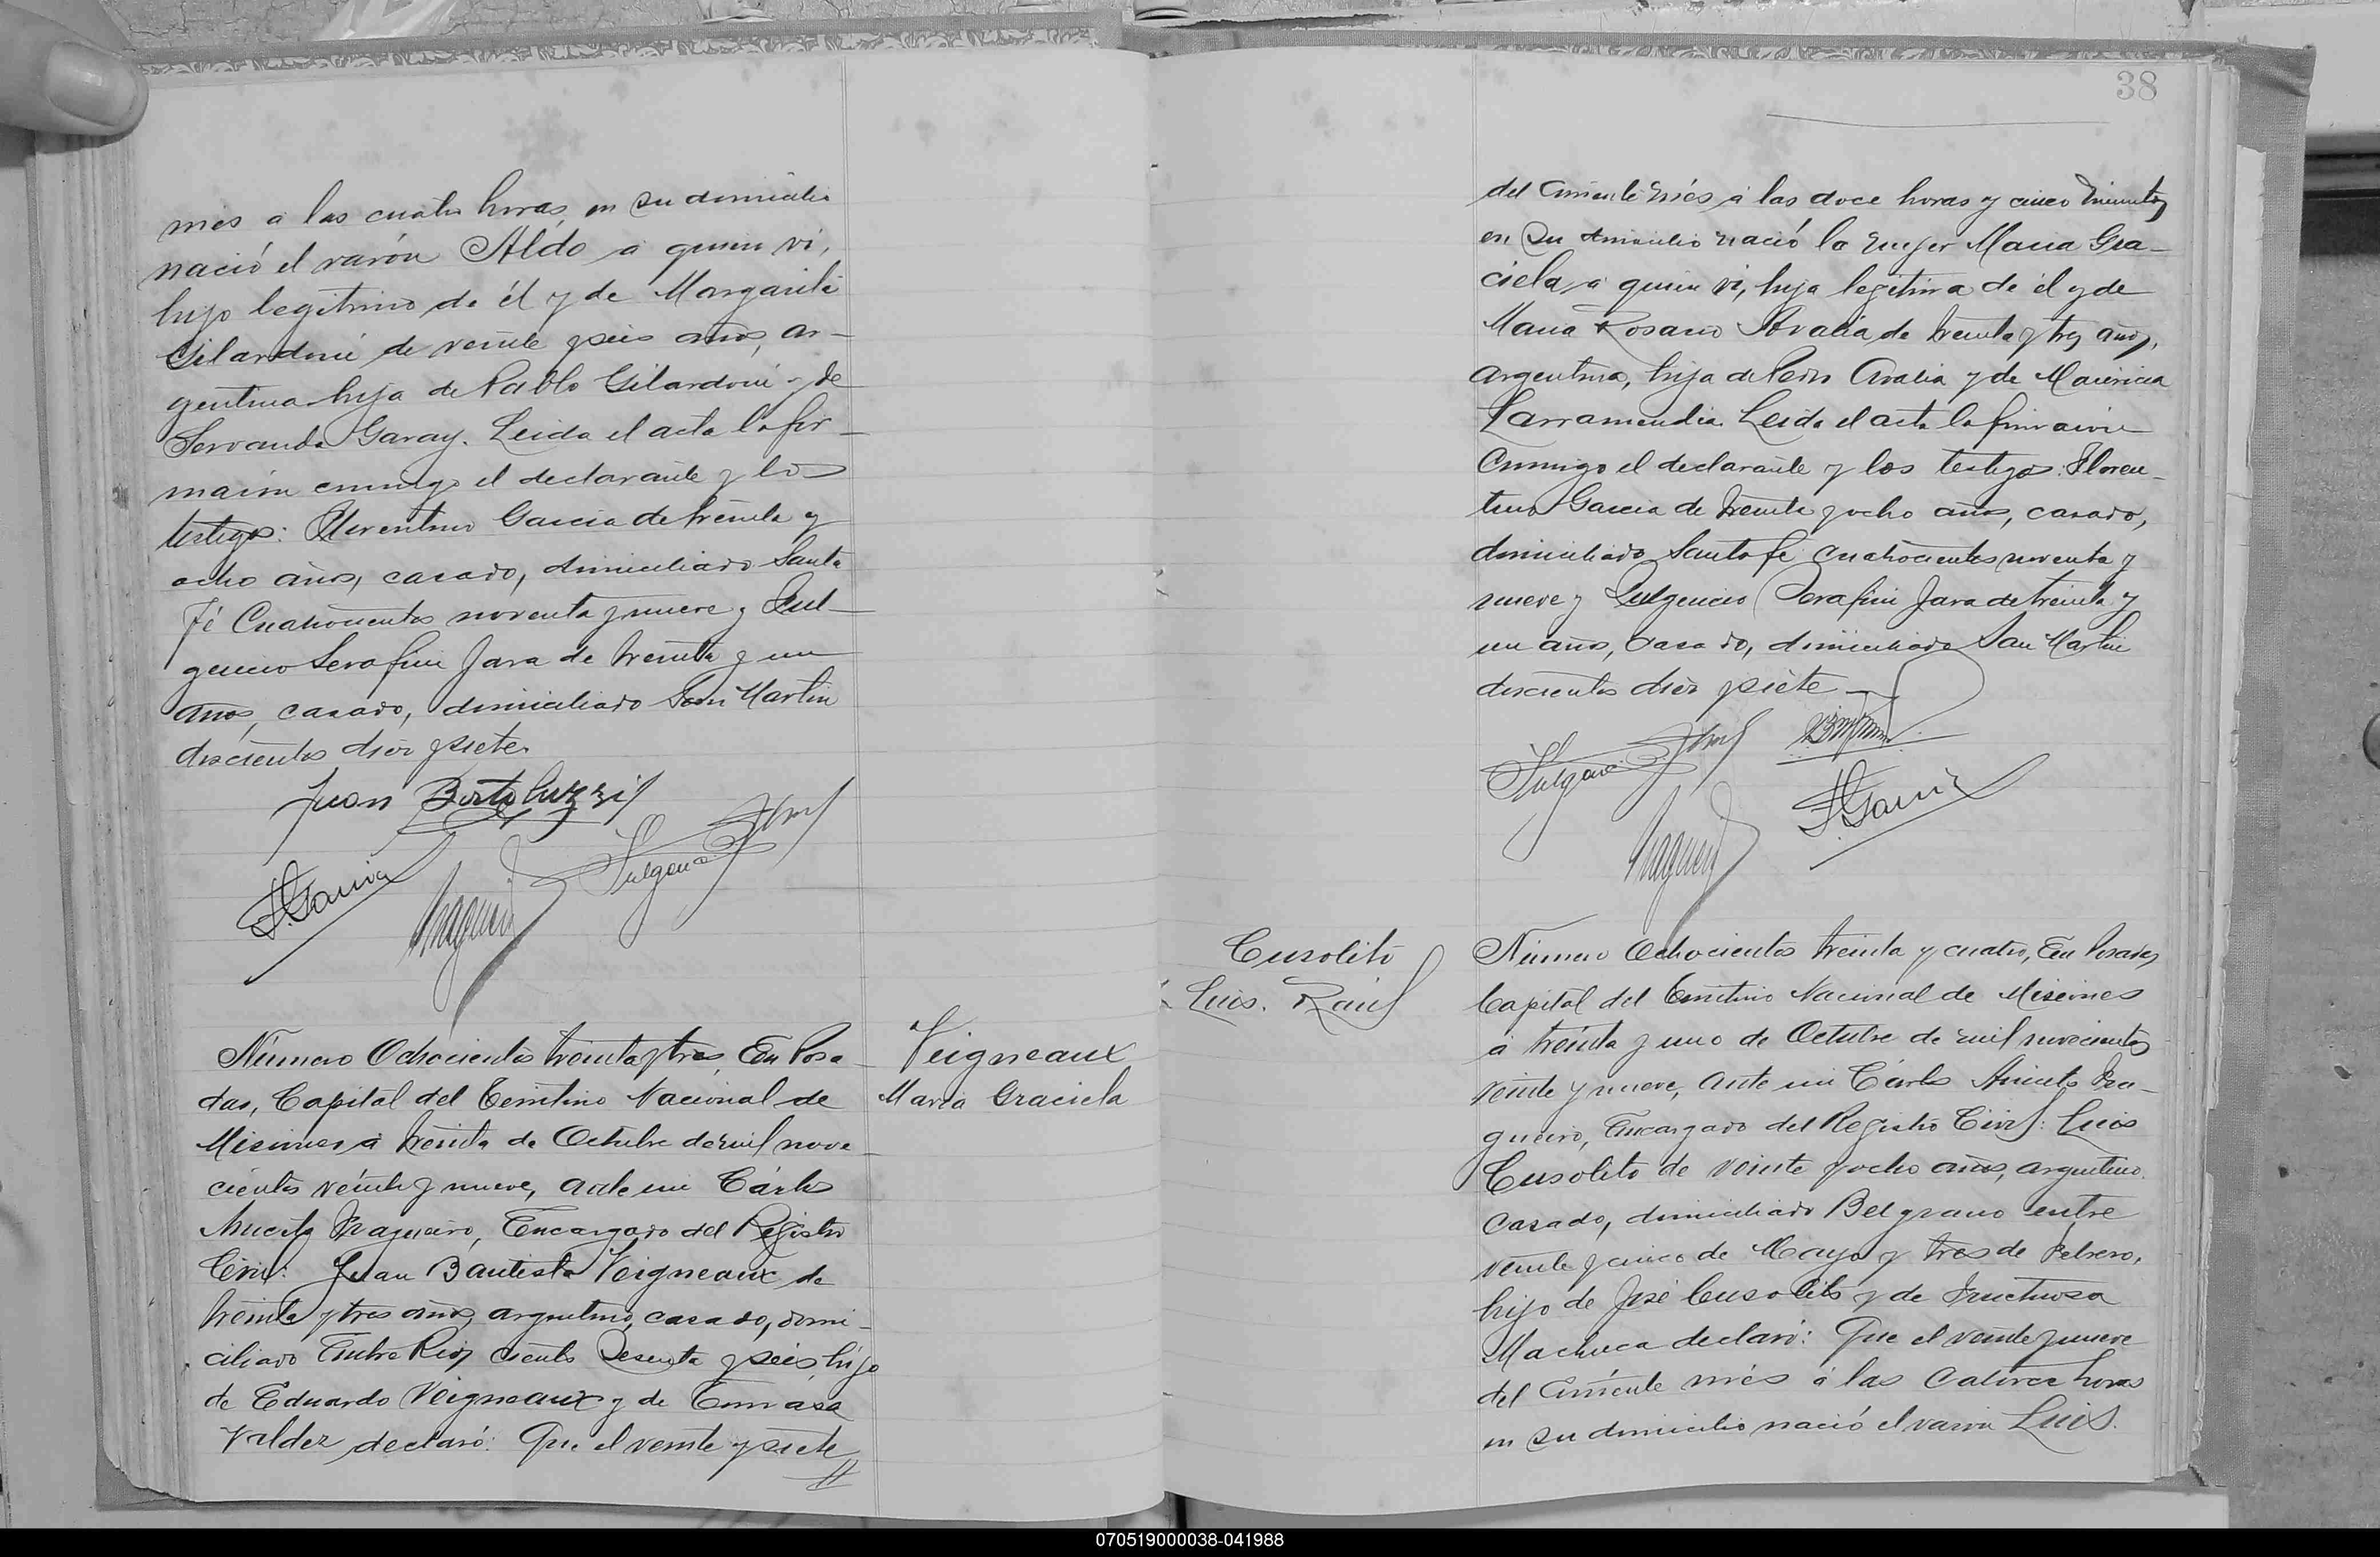 mes á las cuatro horas, en su domicilio
nació el varón Aldo á quien vi,
hijo legítimo de él y de Margarita
Gilardoni de veinte y seis años, ar-
gentina hija de Pablo Gilardoni y de
Servanda Garay. Leida el acta la fir-
maron conmigo el declarante y los
testigos: Florentino Garcia de treinta y
ocho años, casado, domiciliado Santa
Fé Cuatrocientos noventa y nueve y Ful-
gencio Serafin Jara de treinta y un
años, casado, domiciliado San Martin
doscientos diez y siete.
Juan Bortoluzzi
F. Garcia
Fulgencio
Número Ochocientos treinta y tres, En Posa-
das, Capital del Territorio Nacional de
Misiones á treinta de Octubre de mil nove-
cientos veinte y nueve, ante mi Cárlos
Aniceto Fragueiro, Encargado del Registro
Civil: Juan Bautista Veigneaux de
treinta y tres años, argentino, casado, domi-
ciliado Entre Rios ciento sesenta y seis, hijo
de Eduardo Veigneaux y de Tomasa
Valdez declaró: Que el veinte y siete
Veigneaux
Maria Graciela
38
del corriente més á las doce horas y cinco minutos
en su domicilio nació la mujer Maria Gra-
ciela á quien vi, hija legítima de él y de
Maria Rosario Aralia de treinta y tres años,
argentina, hija de Pedro Aralia y de Mauricia
Larramendia. Leida el acta la firmaron
conmigo el declarante y los testigos: Floren-
tino Garcia de treinta y ocho años, casado,
domiciliado Santa fe cuatrocientos noventa y
nueve y Fulgencio Serafin Jara de treinta y
un años, casado, domiciliado San Martin
doscientos diez y siete
Fulgencio
F. Garcia
Cusolito
Luis. Raúl
Número Ochocientos treinta y cuatro, En Posadas,
Capital del Territorio Nacional de Misiones
á treinta y uno de Octubre de mil novecientos
veinte y nueve, ante mi Cárlos Aniceto Fra-
gueiro, Encargado del Registro Civil: Luis
Cusolito de veinte y ocho años, argentino,
casado, domiciliado Belgrano entre
veinte y cinco de Mayo y tres de Febrero,
hijo de José Cusolito y de Fructuosa
Machuca declaró: Que el veinte y nueve
del corriente més á las catorce horas
en su domicilio nació el varon Luis.
070519000038-041988